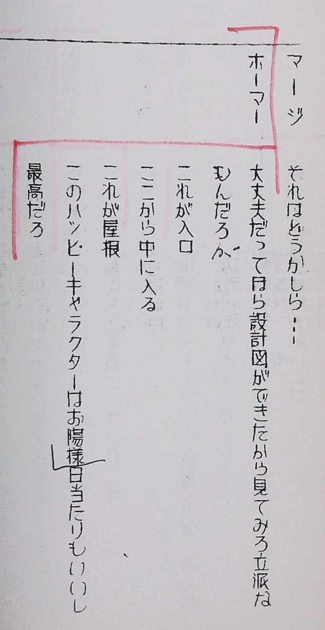 マージ　それはどうかしら…
ホーマー　大丈夫だってほら設計図ができたから見てみろ立派な
もんだろが
これが入口
ここから中に入る
これが屋根
このハッピーキャラクターはお陽様日当たりもいいし
最高だろ